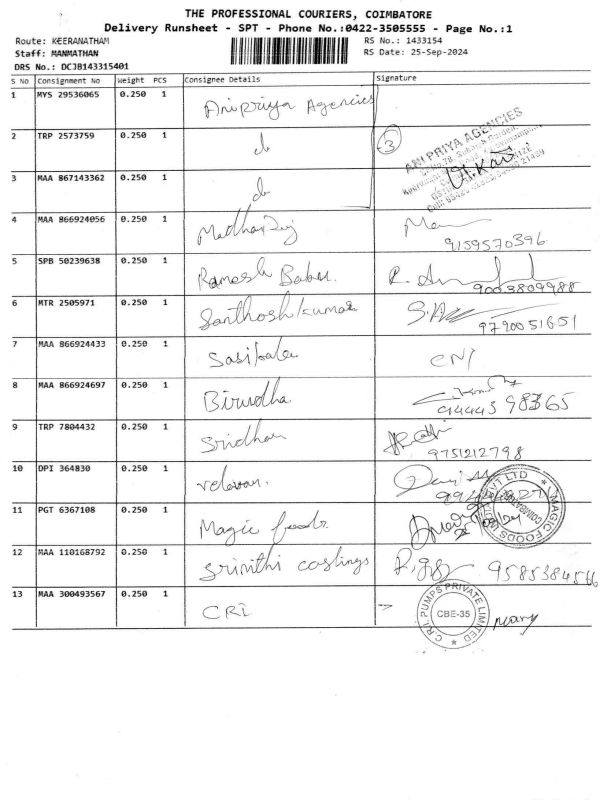 THE PROFESSIONAL COURIERS, COIMBATORE
Delivery Runsheet - SPT - Phone No.:0422-3505555 - Page No.:1
Route: KEERANATHAM
RS No.: 1433154
Staff: MANMATHAN
RS Date: 25-Sep-2024
DRS No.: DCJB143315401
S No Consignment No Weight PCS Consignee Details Signature
1 MYS 29536065 0.250 1 Anipriya Agencies
2 TRP 2573759 0.250 1 do 3
ANI PRIYA AGENCIES
3 MAA 867143362 0.250 1 do
4 MAA 866924056 0.250 1 Madhan Raj
9159570396
5 SPB 50239638 0.250 1 Ramesh Babu.
9003809988
6 MTR 2505971 0.250 1 Santhosh kumar
9790051651
7 MAA 866924433 0.250 1 Sasibala CNI
8 MAA 866924697 0.250 1 Birundha
9444398365
9 TRP 7804432 0.250 1 Sridhar
9751212798
10 DPI 364830 0.250 1 velavan.
11 PGT 6367108 0.250 1 Magic foods
MAGIC FOODS
12 MAA 110168792 0.250 1 Srinithi castings 9585384566
13 MAA 300493567 0.250 1 CRI
C.R.I. PUMPS PRIVATE LIMITED
CBE-35